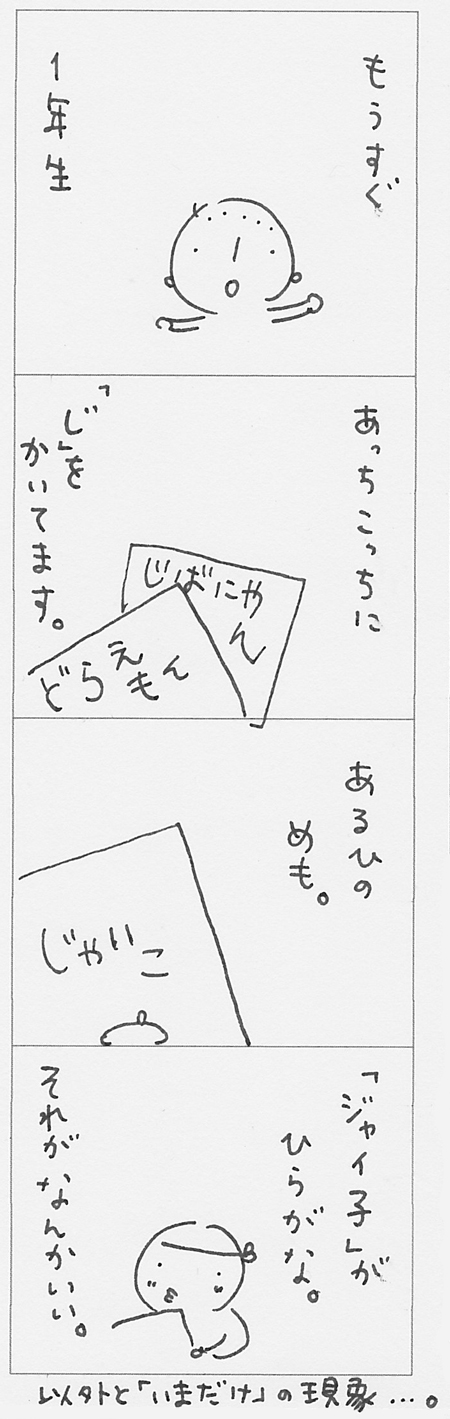 もうすぐ
1年生
あっちこっちに
「じ」を
かいてます。
じばにゃ
ん
どらえ
もん
あるひの
めも。
じゃいこ
「ジャイ子」が
ひらがな。
それがなんかいい。
以外と「いまだけ」の現象…。